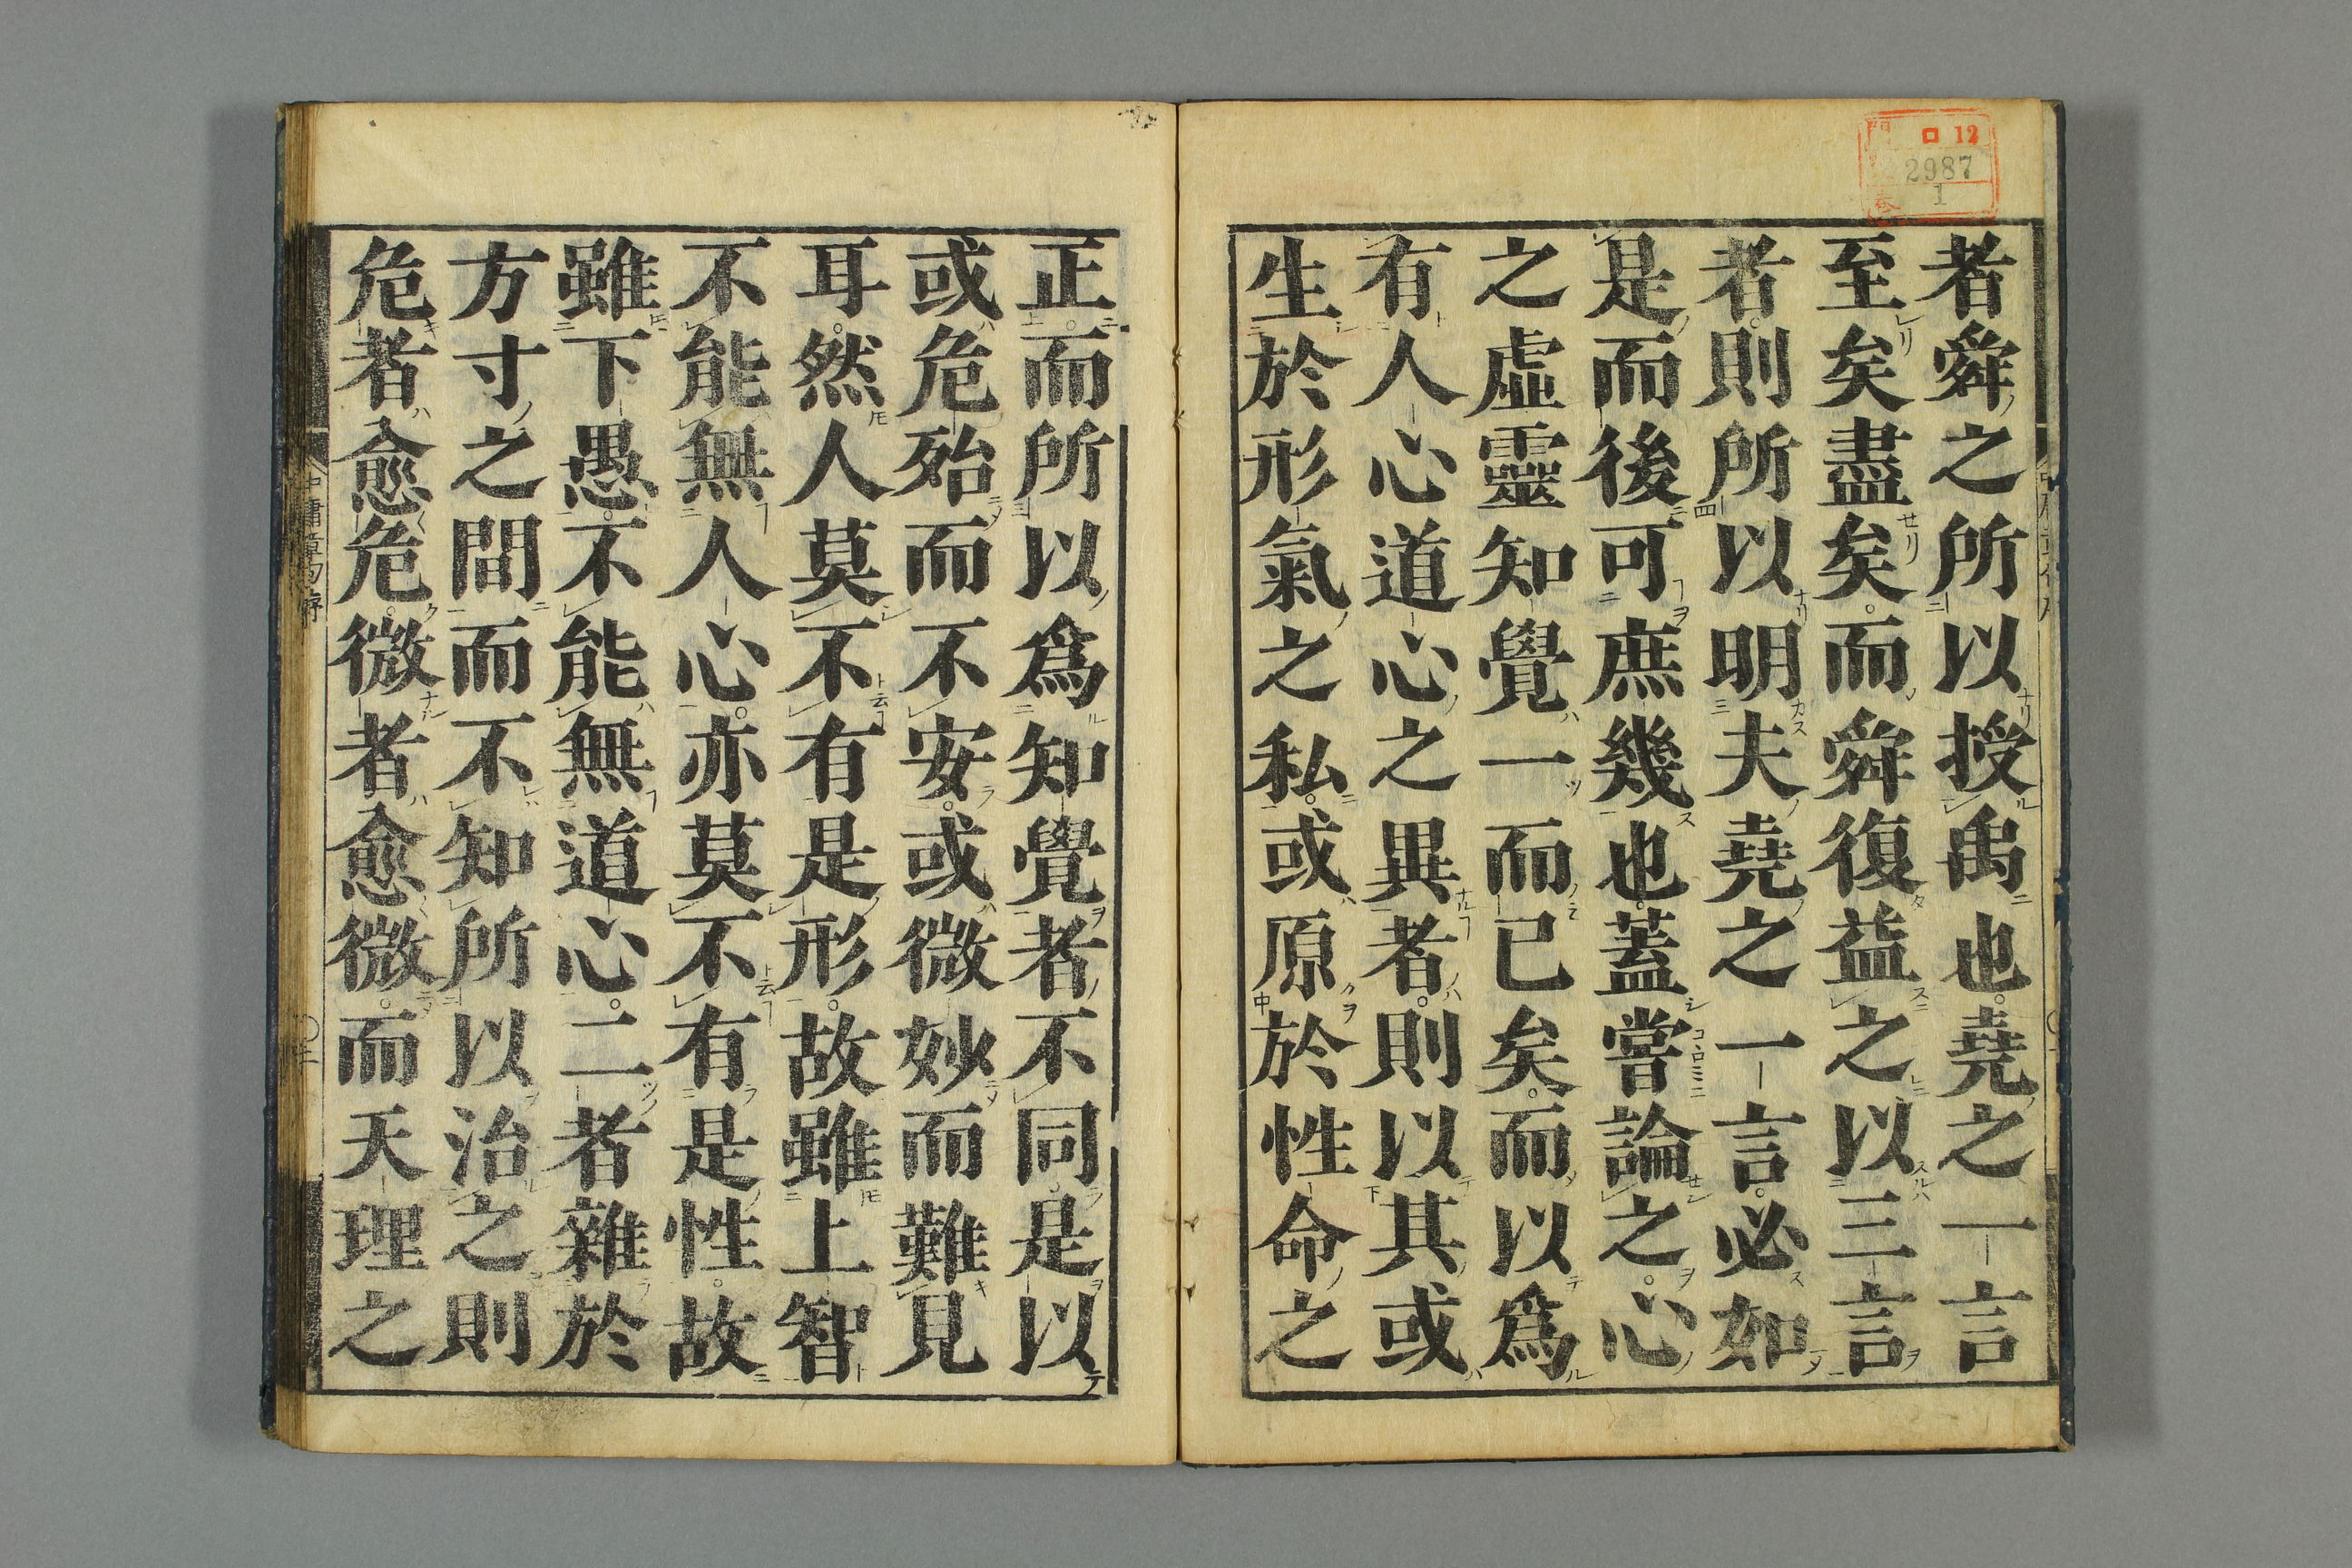 者舜之所以授禹也。堯之一言
至矣盡矣。而舜復益之以三言
者。則所以明夫堯之一言。必如
是而後可庶幾也。蓋嘗論之。心
之虛靈知覺一而已矣。而以爲
有人心道心之異者。則以其或
生於形氣之私。或原於性命之
正。而所以爲知覺者不同。是以
或危殆而不安。或微妙而難見
耳。然人莫不有是形。故雖上智
不能無人心。亦莫不有是性。故
雖下愚。不能無道心。二者雜於
方寸之間。而不知所以治之。則
危者愈危。微者愈微。而天理之
中庸章句序
口 12
2987
1